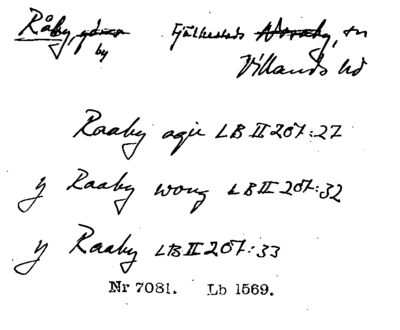 Råby, gård Fjälkestads Norraby, sn
by Villands hd
Raaby agir LB II 207:27
y Raaby wong LB II 207:32
y Raaby LB II 207:33
Nr 7081. Lb 1569.